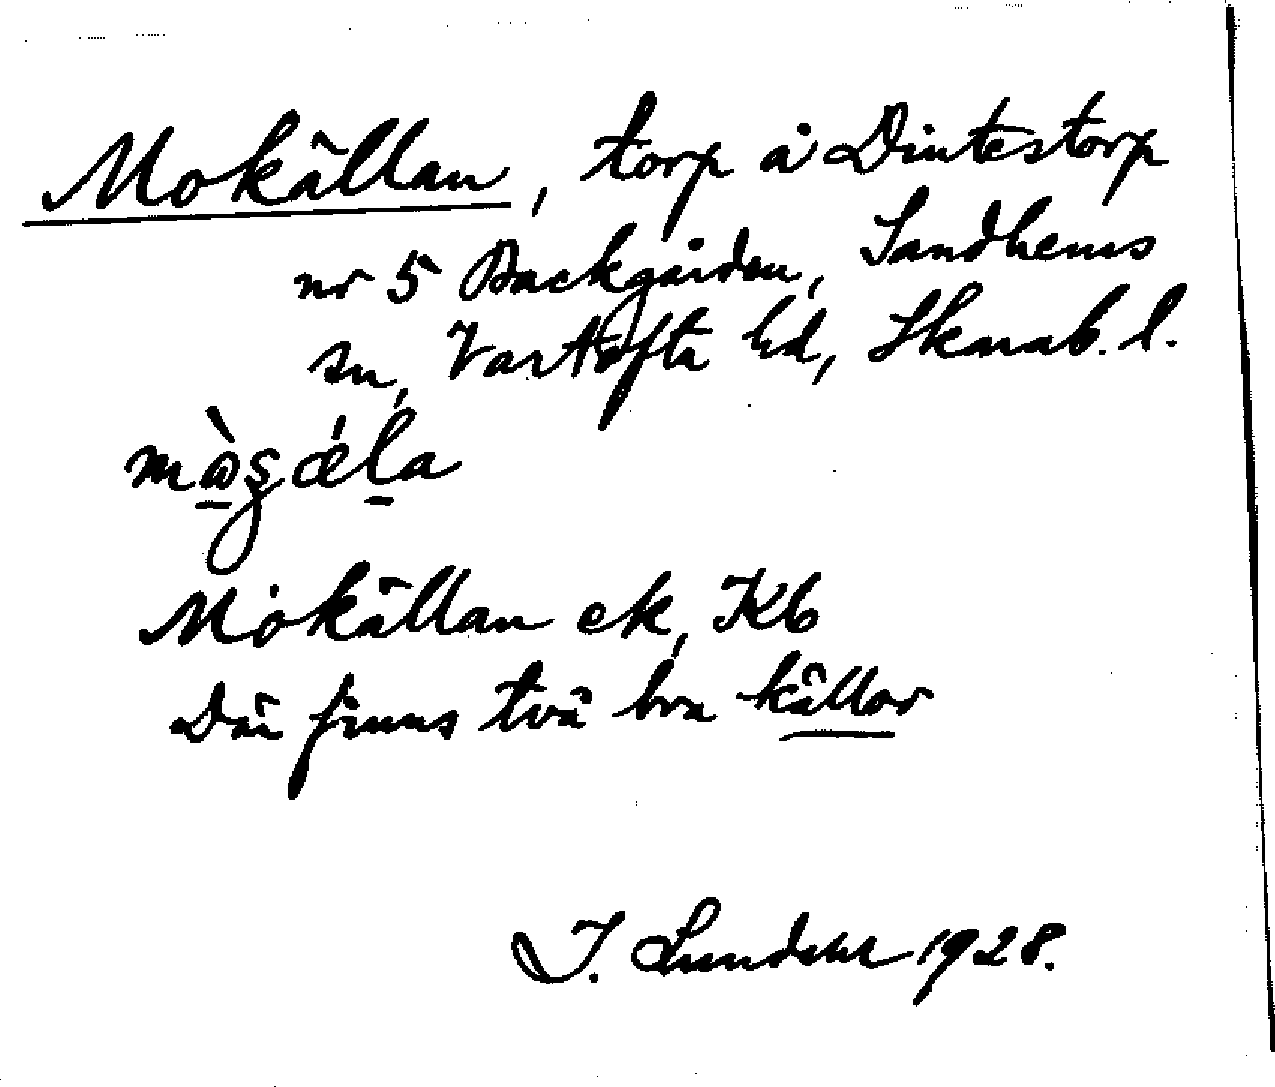 Mokällan, torp å Dintestorp
nr 5 Backgården, Sandhems
sn, Vartofta hd, Skarab. l.
Mokällan ek, Kb
Där finns två bra källor
J. Lundahl 1928.